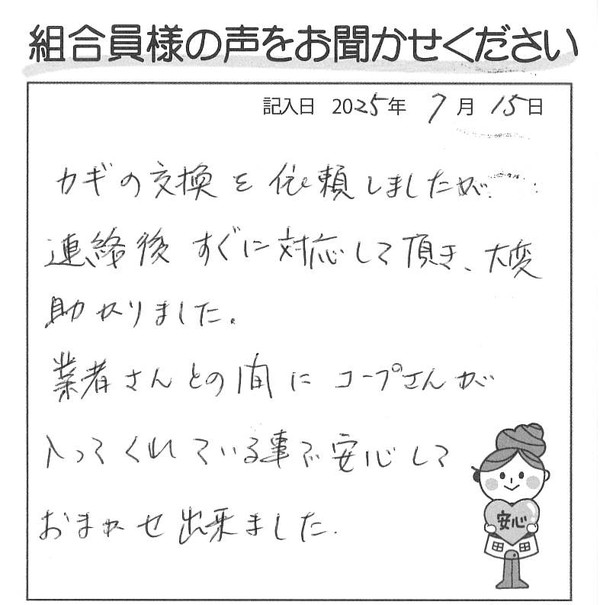 組合員様の声をお聞かせください
記入日 2025年 7月 15日
カギの交換を依頼しましたが
連絡後すぐに対応して頂き、大変
助かりました。
業者さんとの間にコープさんが
入ってくれている事で安心して
おまかせ出来ました.
安心